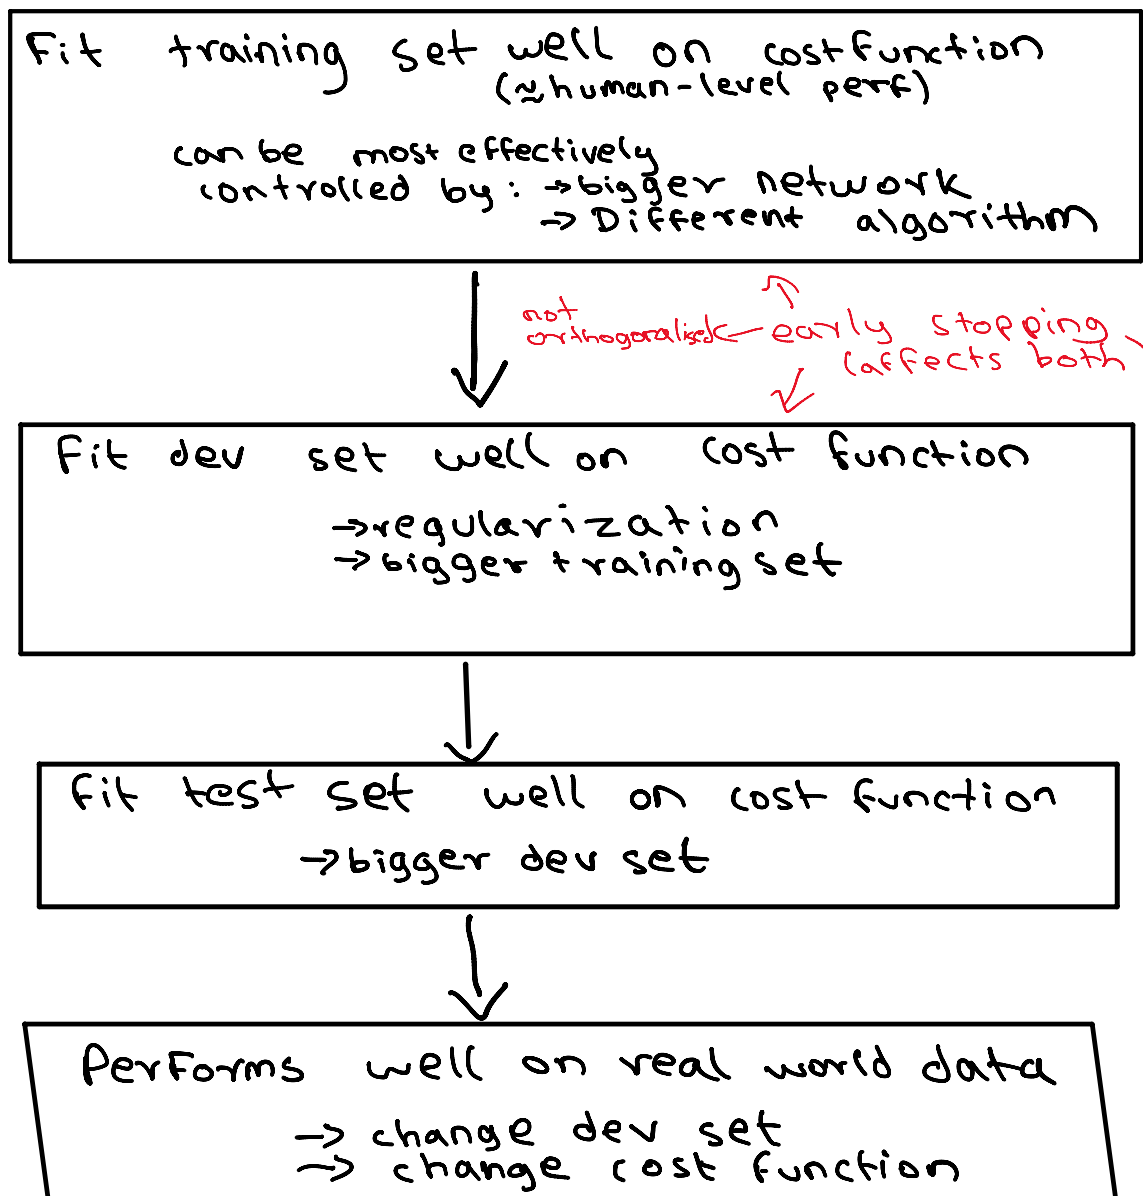 Fit training set well on cost function
(≈ human-level perf)
can be most effectively
controlled by: → bigger network
→ Different algorithm
not
orthogonalised ← early stopping
(affects both
Fit dev set well on cost function
→ regularization
→ bigger training set
Fit test set well on cost function
→ bigger dev set
Performs well on real world data
→ change dev set
→ change cost function